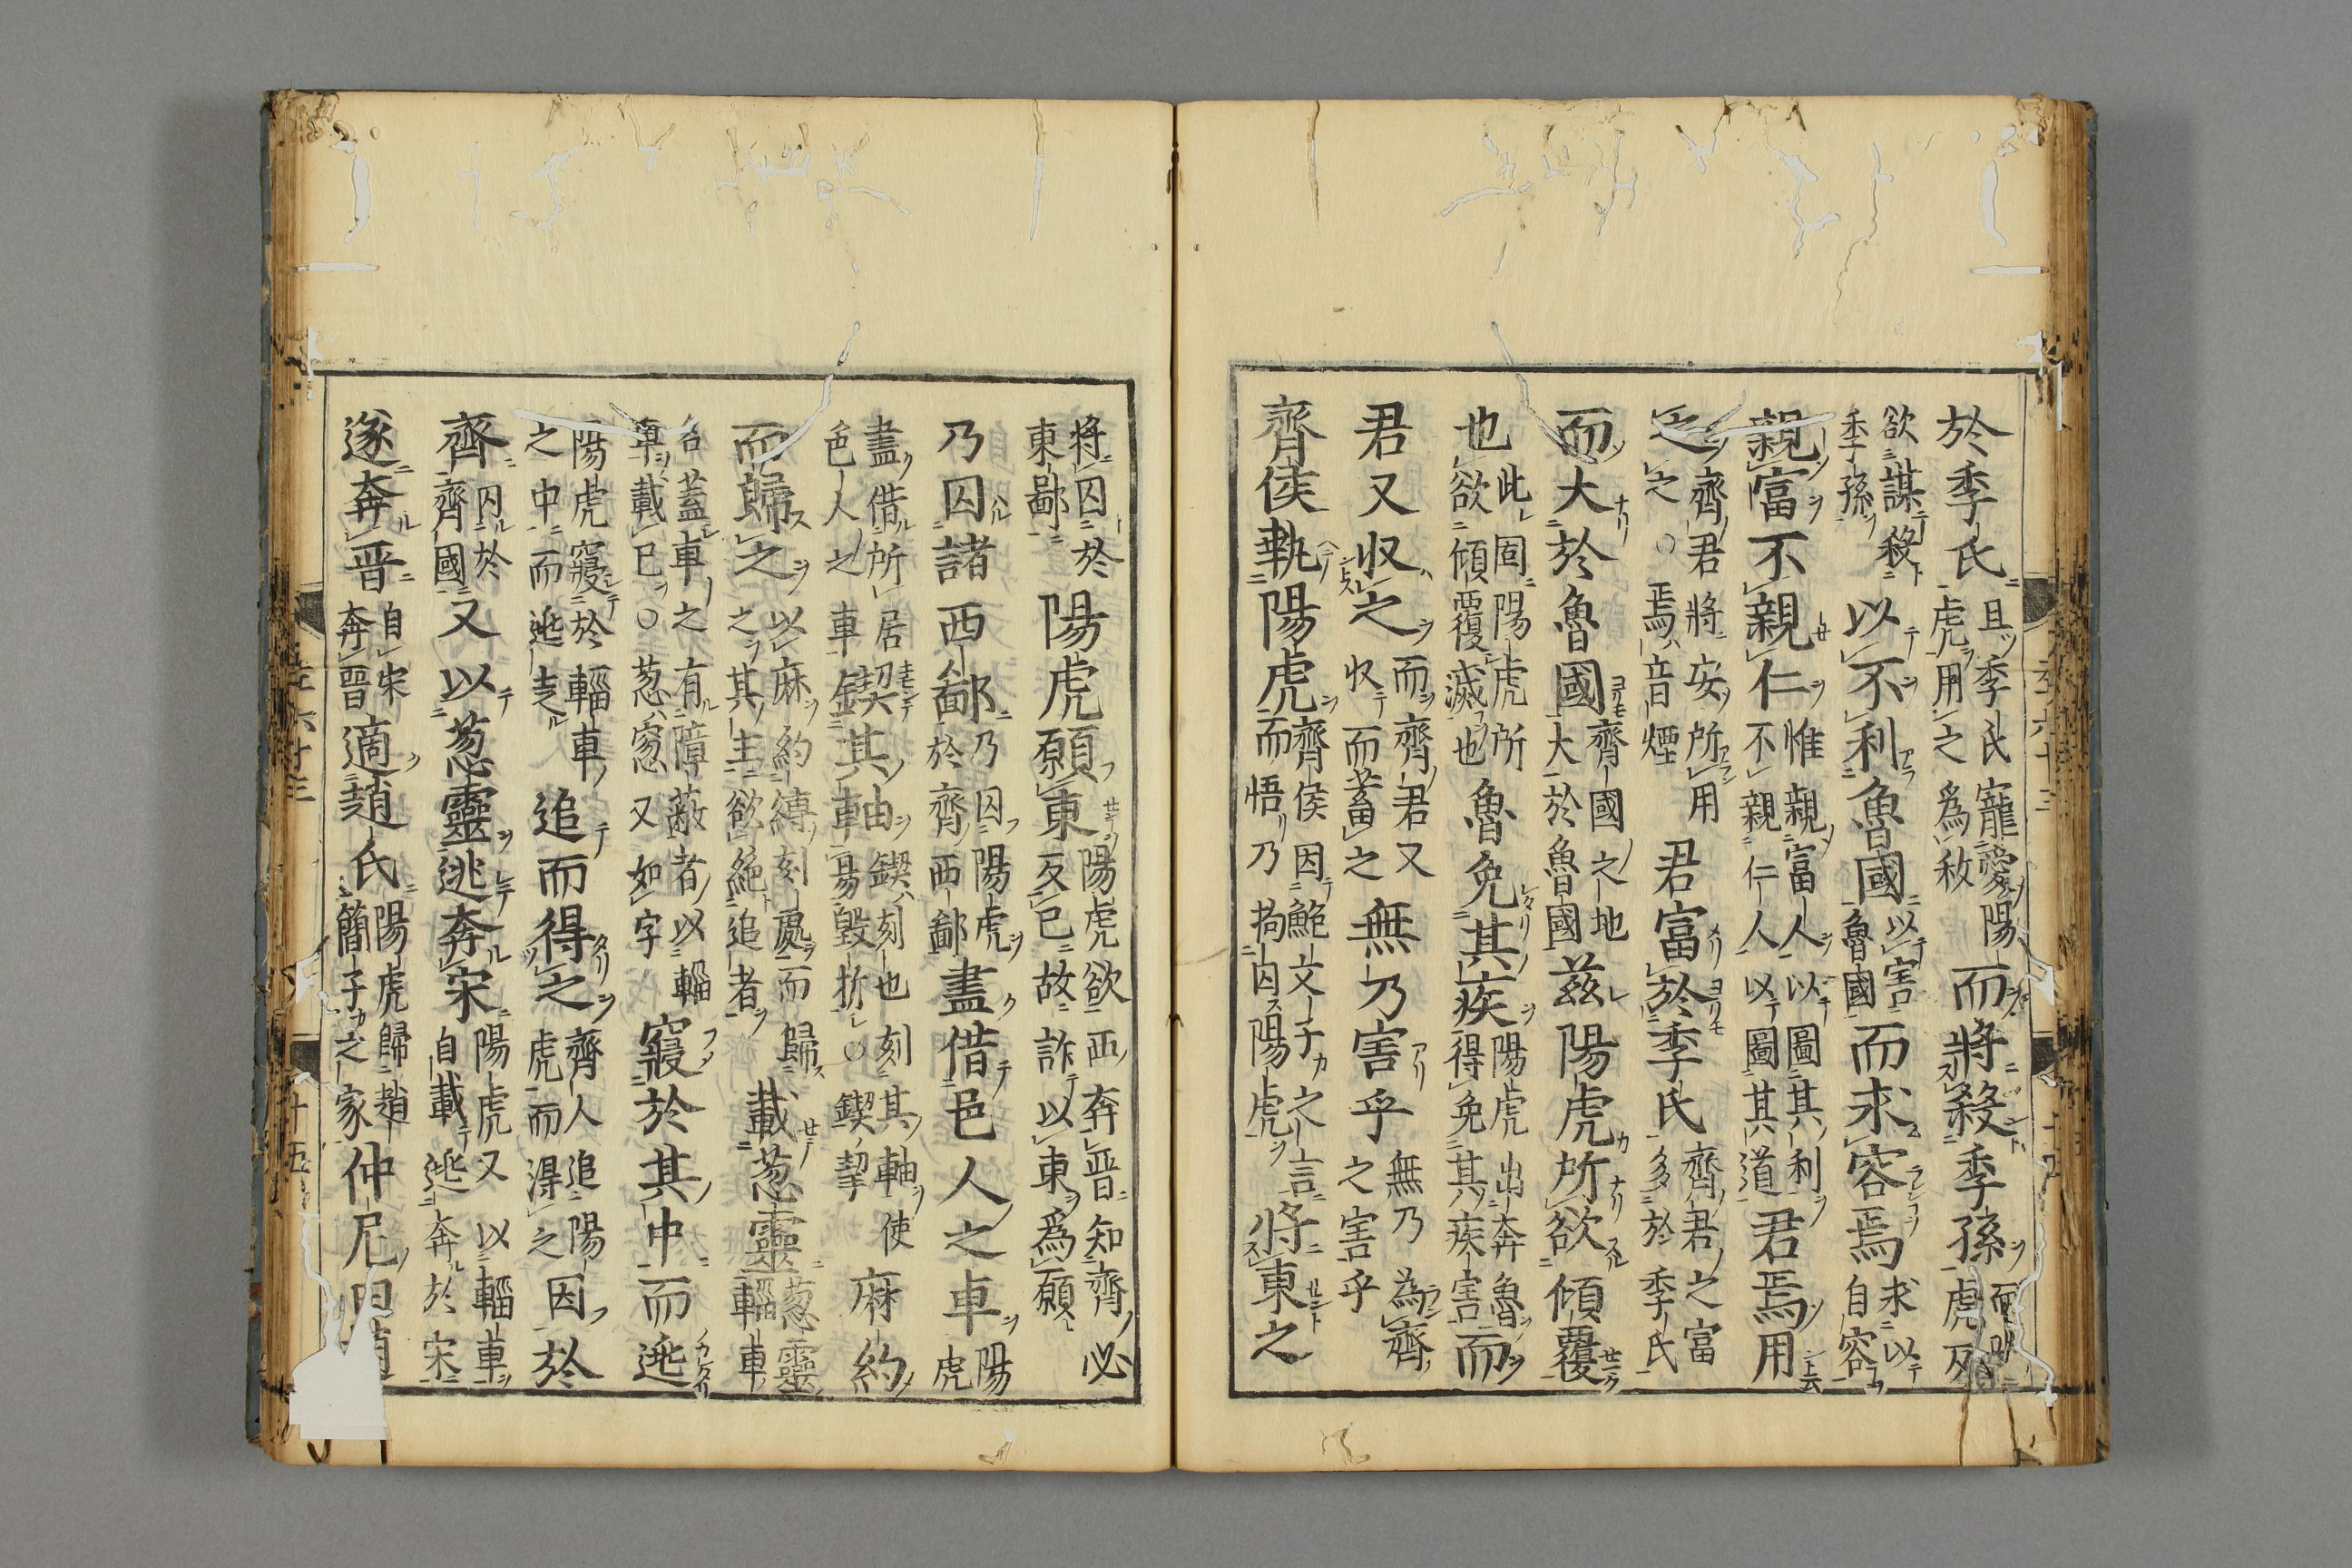 於季氏且季氏寵愛陽虎用之爲政而將殺季孫虎
欲謀殺季孫以不利魯國以害魯國而求容焉求以自容
親富不親仁惟親富人不親仁人君焉用以圖其利以圖其道
之齊君將安所用之○焉音煙君富於季氏齊君之富多於季氏
而大於魯國齊國之地大於魯國茲陽虎所欲傾覆
也此固陽虎所欲傾覆滅也魯免其疾陽虎出奔魯得免其疾害而
君又收之而齊君又收而蓄之無乃害乎無乃為齊之害乎
齊侯執陽虎齊侯因鮑文子之言而悟乃拘囚陽虎將東之
將囚於東鄙陽虎願東陽虎欲西奔晉知齊必反已故詐以東爲願
乃囚諸西鄙乃囚陽虎於齊西鄙盡借邑人之車陽虎
盡借所居邑人之車鍥其軸鍥刻也刻其軸使車易毀折○鍥挈麻約
而歸之以麻約縛刻處而歸之其主欲絕追者載葱靈葱靈輜車
名蓋車之有障蔽者以輜車載已○葱窓又如字寢於其中而逃
陽虎寢於輜車之中而逃走追而得之齊人追陽虎而得之囚於
齊囚於齊國又以葱靈逃奔宋陽虎又以輜車自載逃奔於宋
遂奔晉自宋奔晉適趙氏陽虎歸趙簡子之家仲尼曰趙